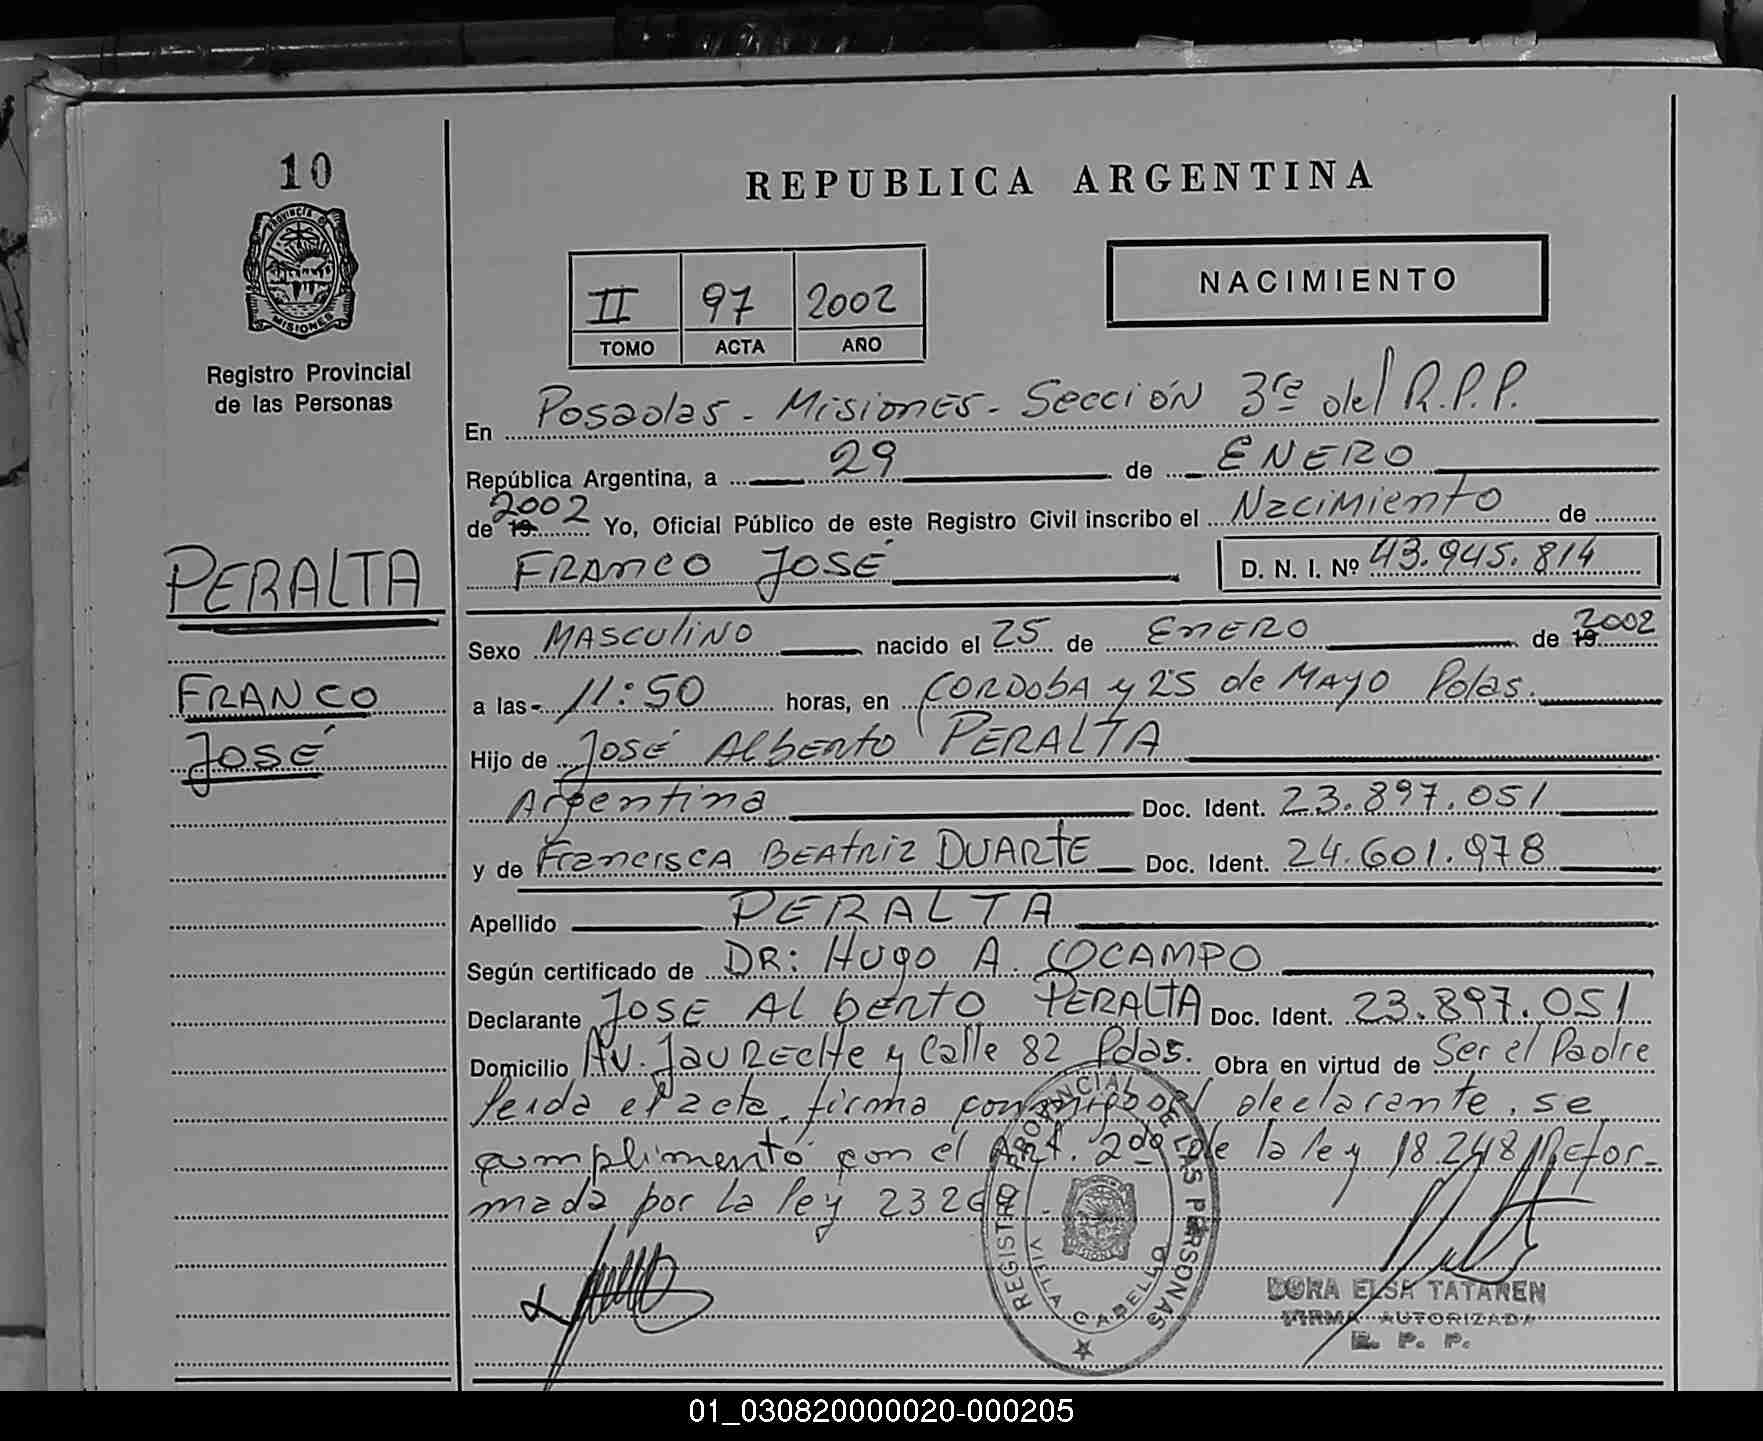 10
PROVINCIA DE
MISIONES
Registro Provincial
de las Personas
PERALTA
FRANCO
JOSÉ
REPUBLICA ARGENTINA
II 97 2002
TOMO ACTA AÑO
NACIMIENTO
En Posadas - Misiones - Sección 3ra del R.P.P.
República Argentina, a 29 de ENERO
de 19 2002 Yo, Oficial Público de este Registro Civil inscribo el Nacimiento de
FRANCO JOSÉ D. N. I. Nº 43.945.814
Sexo MASCULINO nacido el 25 de ENERO de 19 2002
a las - 11:50 horas, en CORDOBA y 25 de MAYO Pdas.
Hijo de José Alberto PERALTA
Argentina Doc. Ident. 23.897.051
y de Francisca BEATRIZ DUARTE Doc. Ident. 24.601.978
Apellido PERALTA
Según certificado de DR: Hugo A. OCAMPO
Declarante JOSE ALBERTO PERALTA Doc. Ident. 23.897.051
Domicilio AV. JAURECHE y Calle 82 Pdas. Obra en virtud de Ser el Padre
leida el acta, firma conmigo el declarante, se
cumplimentó con el Art. 2do de la ley 18.248 Refor-
mada por la ley 2326
REGISTRO PROVINCIAL DE LAS PERSONAS
VILLA CABELLO
MISIONES
DORA ELSA TATAREN
FIRMA AUTORIZADA
R. P. P.
01_030820000020-000205